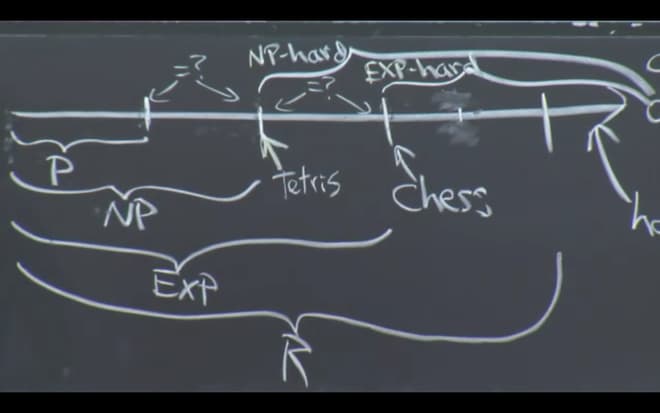 =?
NP-hard
=?
EXP-hard
P
Tetris
Chess
NP
EXP
R